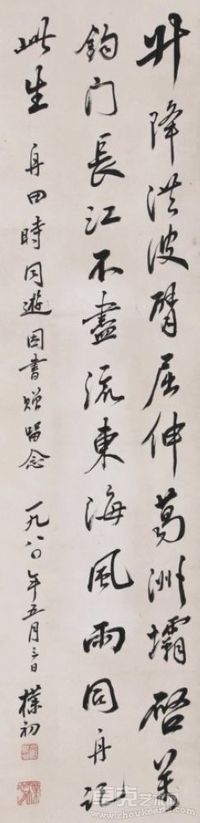 升降洪波臂屈伸葛洲壩啓萬
鈞门長江不盡流東海風雨同舟记
此生 舟田時同遊因書贈留念 一九八〇年五月三日 樸初